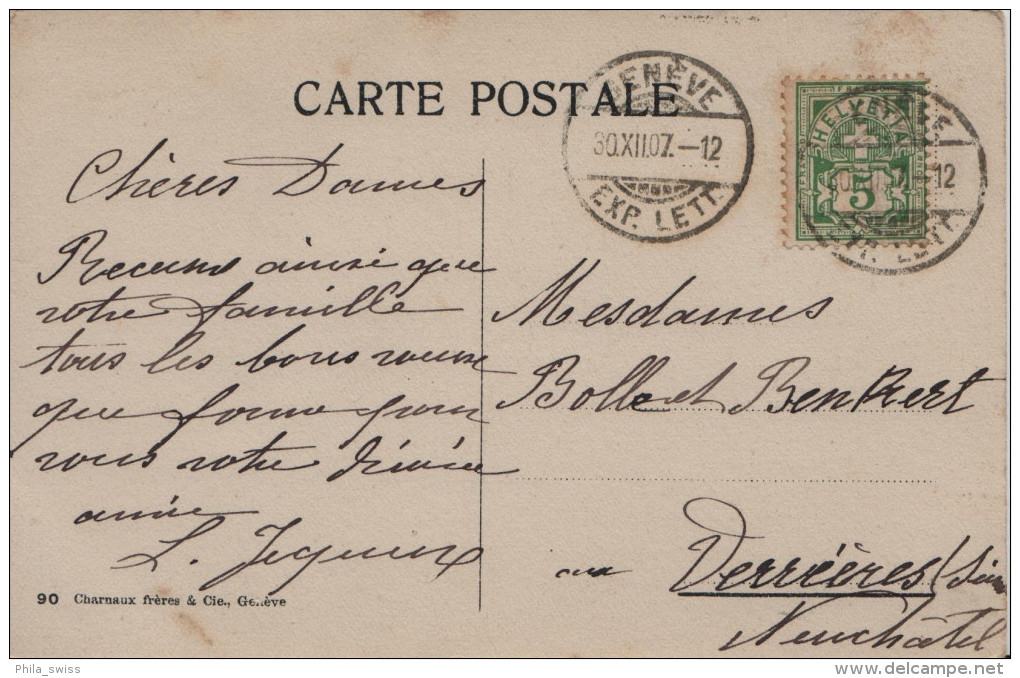 CARTE POSTALE
GENÈVE
30.XII.07.–12
EXP. LETT.
HELVETIA
5
12
Chères Dames
Recevez ainsi que
votre famille
tous les bons vœux
que forme pour
vous votre
année
L. Jequier
Mesdames
Bolle et Benkert
aux Verrières (Suisse
Neuchâtel
90 Charnaux frères & Cie., Genève
Phila_swiss
delcampe.net